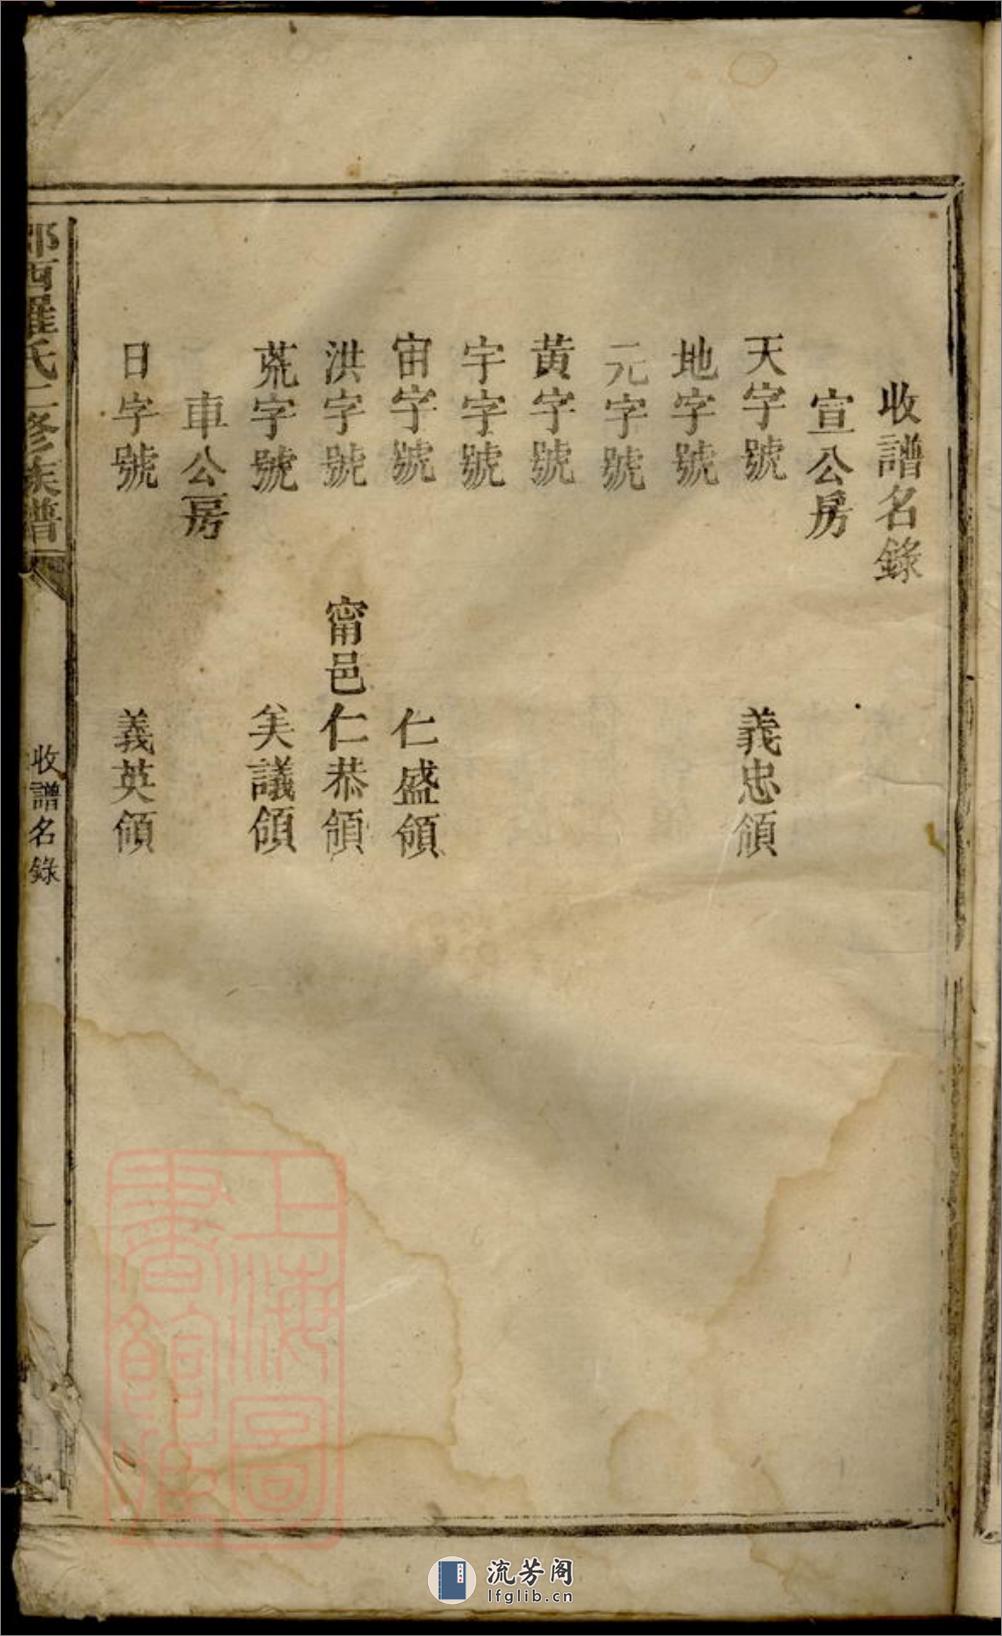 收譜名錄
宣公房
天字號 義忠領
地字號
元字號
黃字號
宇字號
宙字號 仁盛領
洪字號 甯邑仁恭領
荒字號 矣議領
車公房
日字號 義英領
西羅氏二修族譜
收譜名錄
一
上海圖
書館藏
流芳阁
lfglib.cn